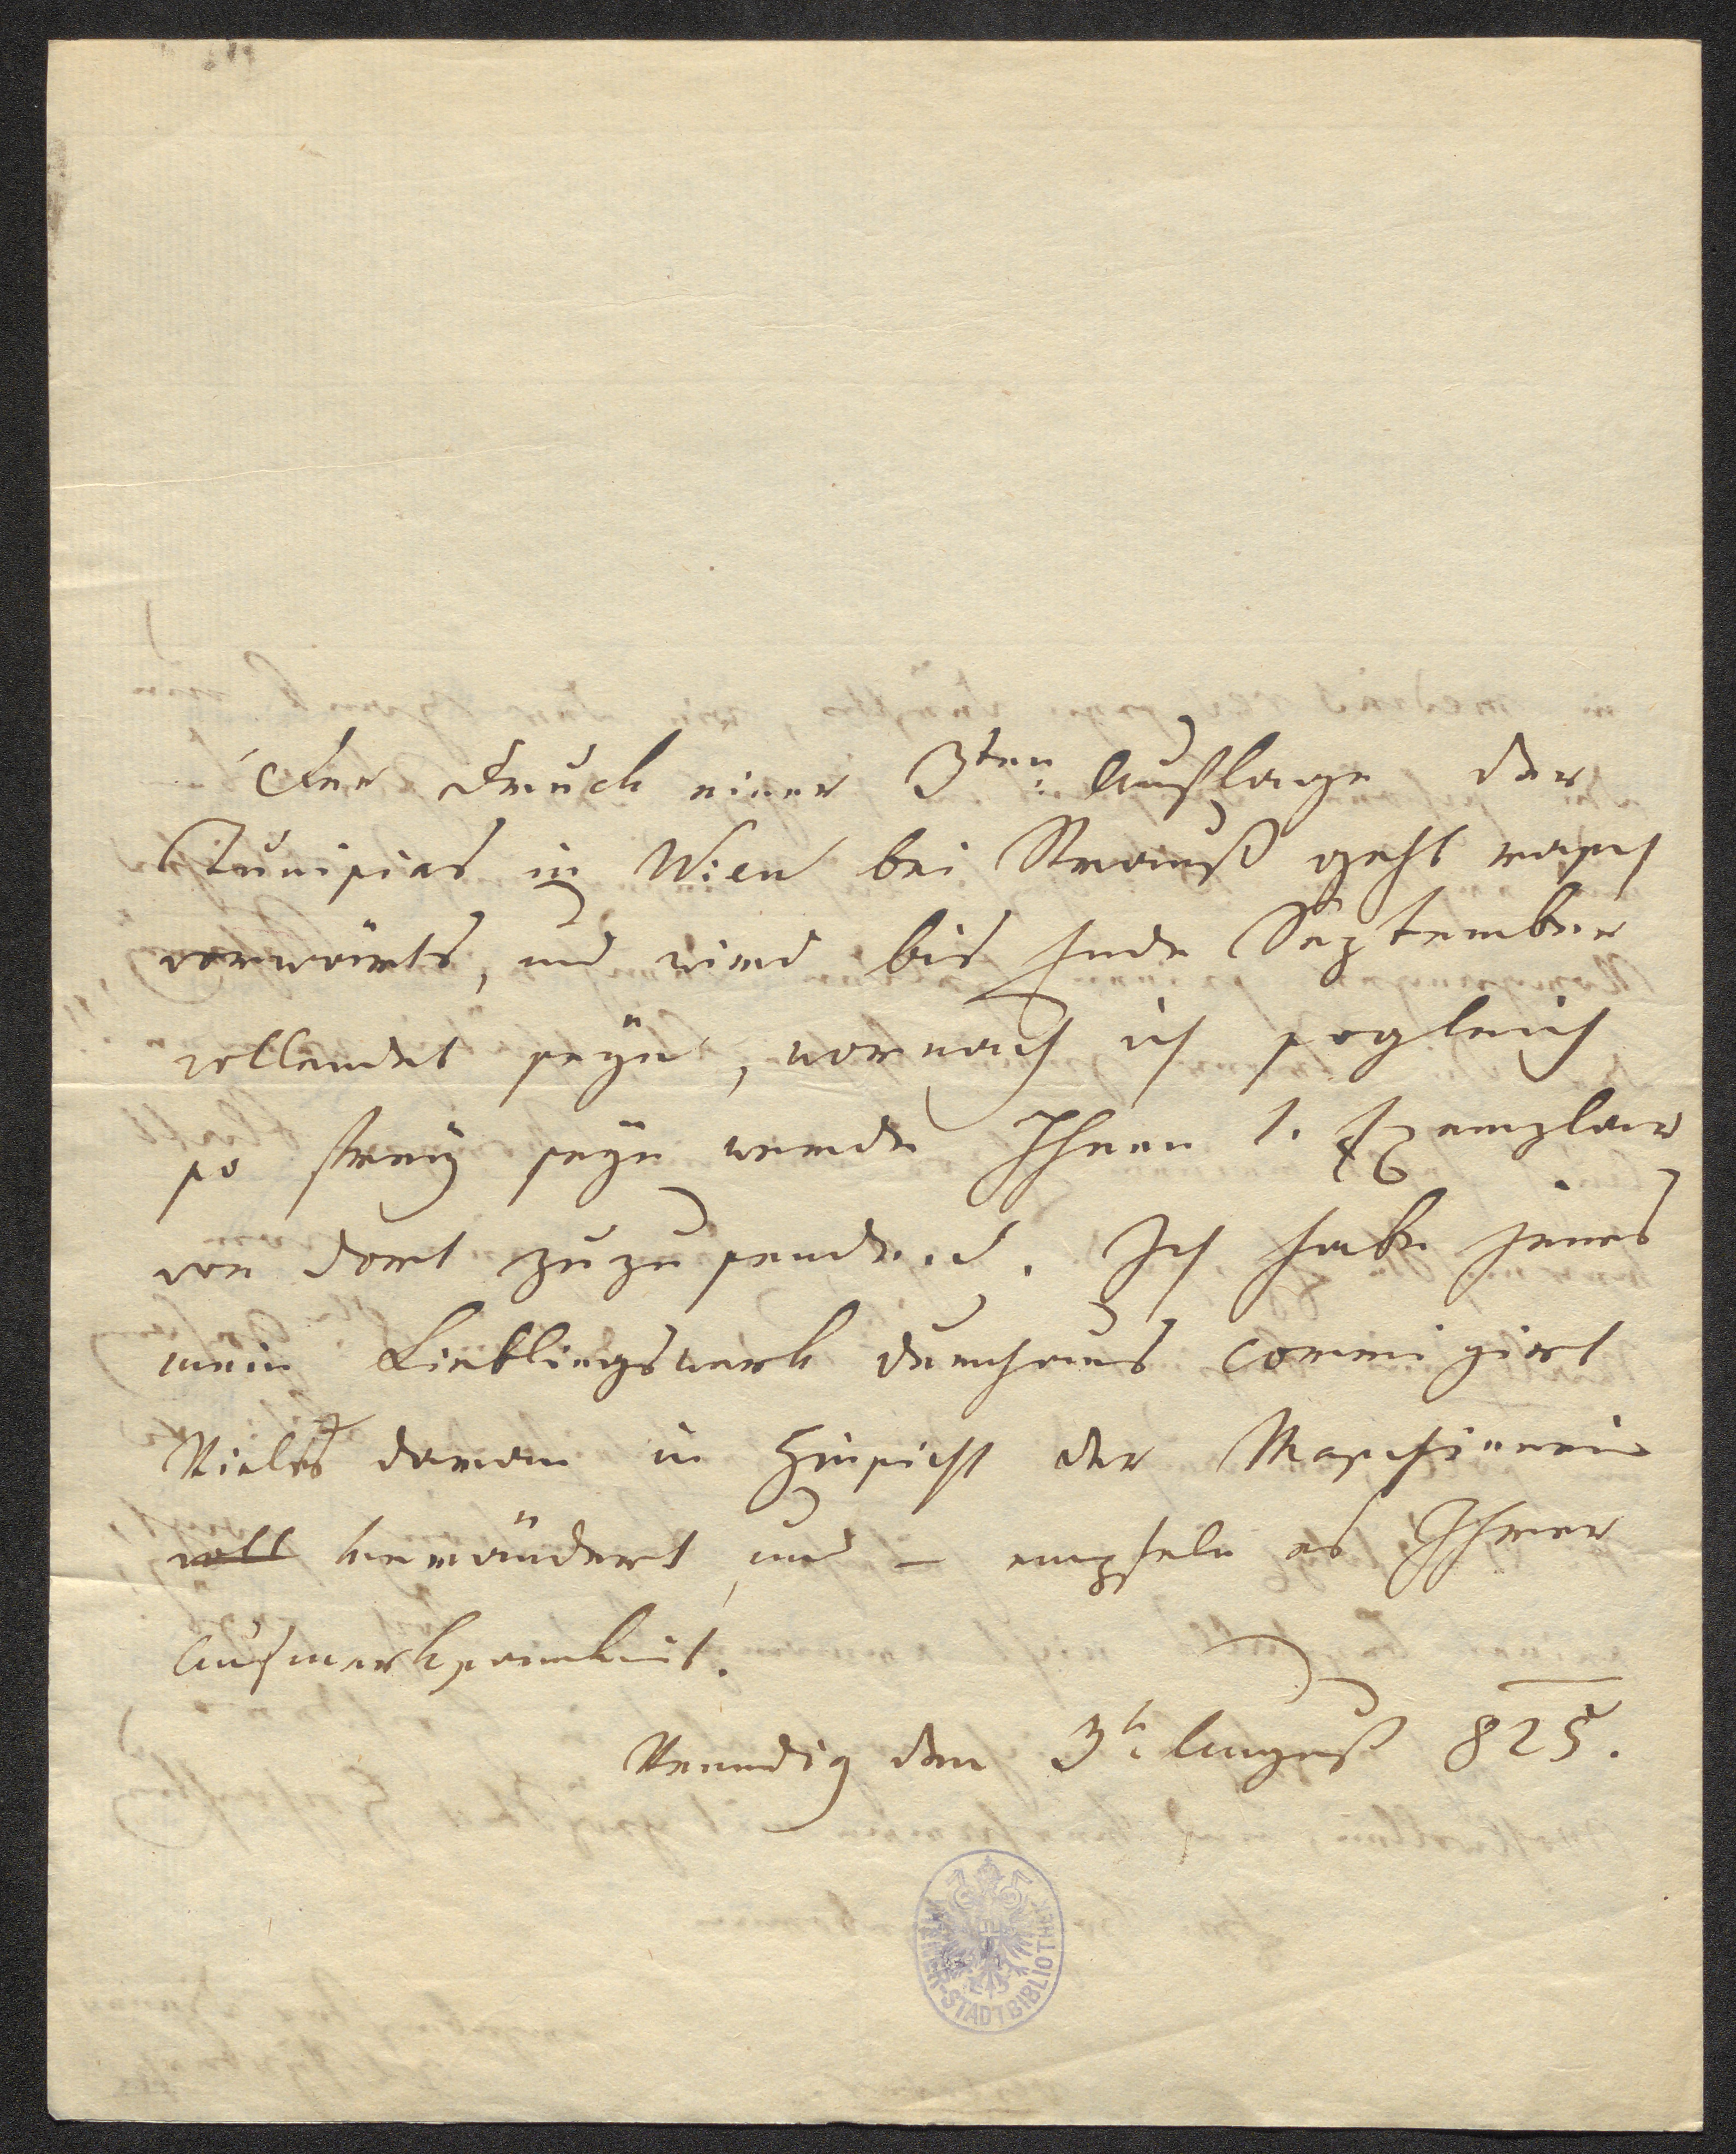 Der Druck einer 3ten Auflage der
Tunisias in Wien bei Strauß geht rasch
vorwärts, und wird bis Ende September
vollendet seyn, wornach ich sogleich
so frey seyn werde Ihnen 1. Exemplar
von dort zuzusenden. Ich habe jenes
mein Lieblingswerk durchaus corrigirt
Vieles daran in Hinsicht der Maschinerie
voll verändert, und – empfele es Ihrer
Aufmerksamkeit.
Venedig den 3t August 825.
WIENER-STADTBIBLIOTHEK